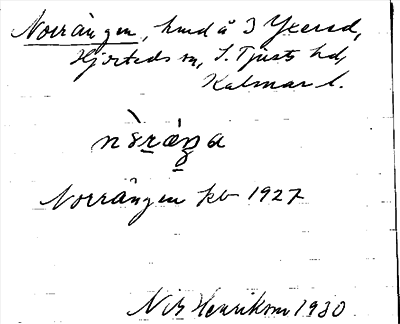 Norrången, hmd å 3 Yxered,
Hjorteds sn, S. Tjusts hd,
Kalmar l.
Norrången kb 1927
Nils Henrikson 1930